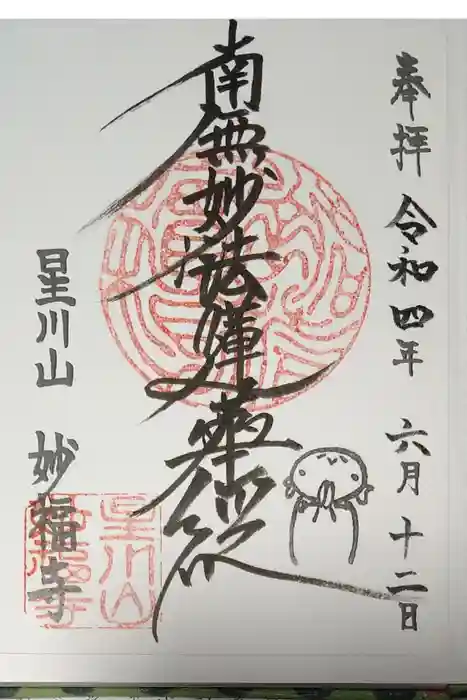 奉拝 令和四年 六月十二日
南無妙法蓮華経
星川山 妙福寺
星川山
妙福寺